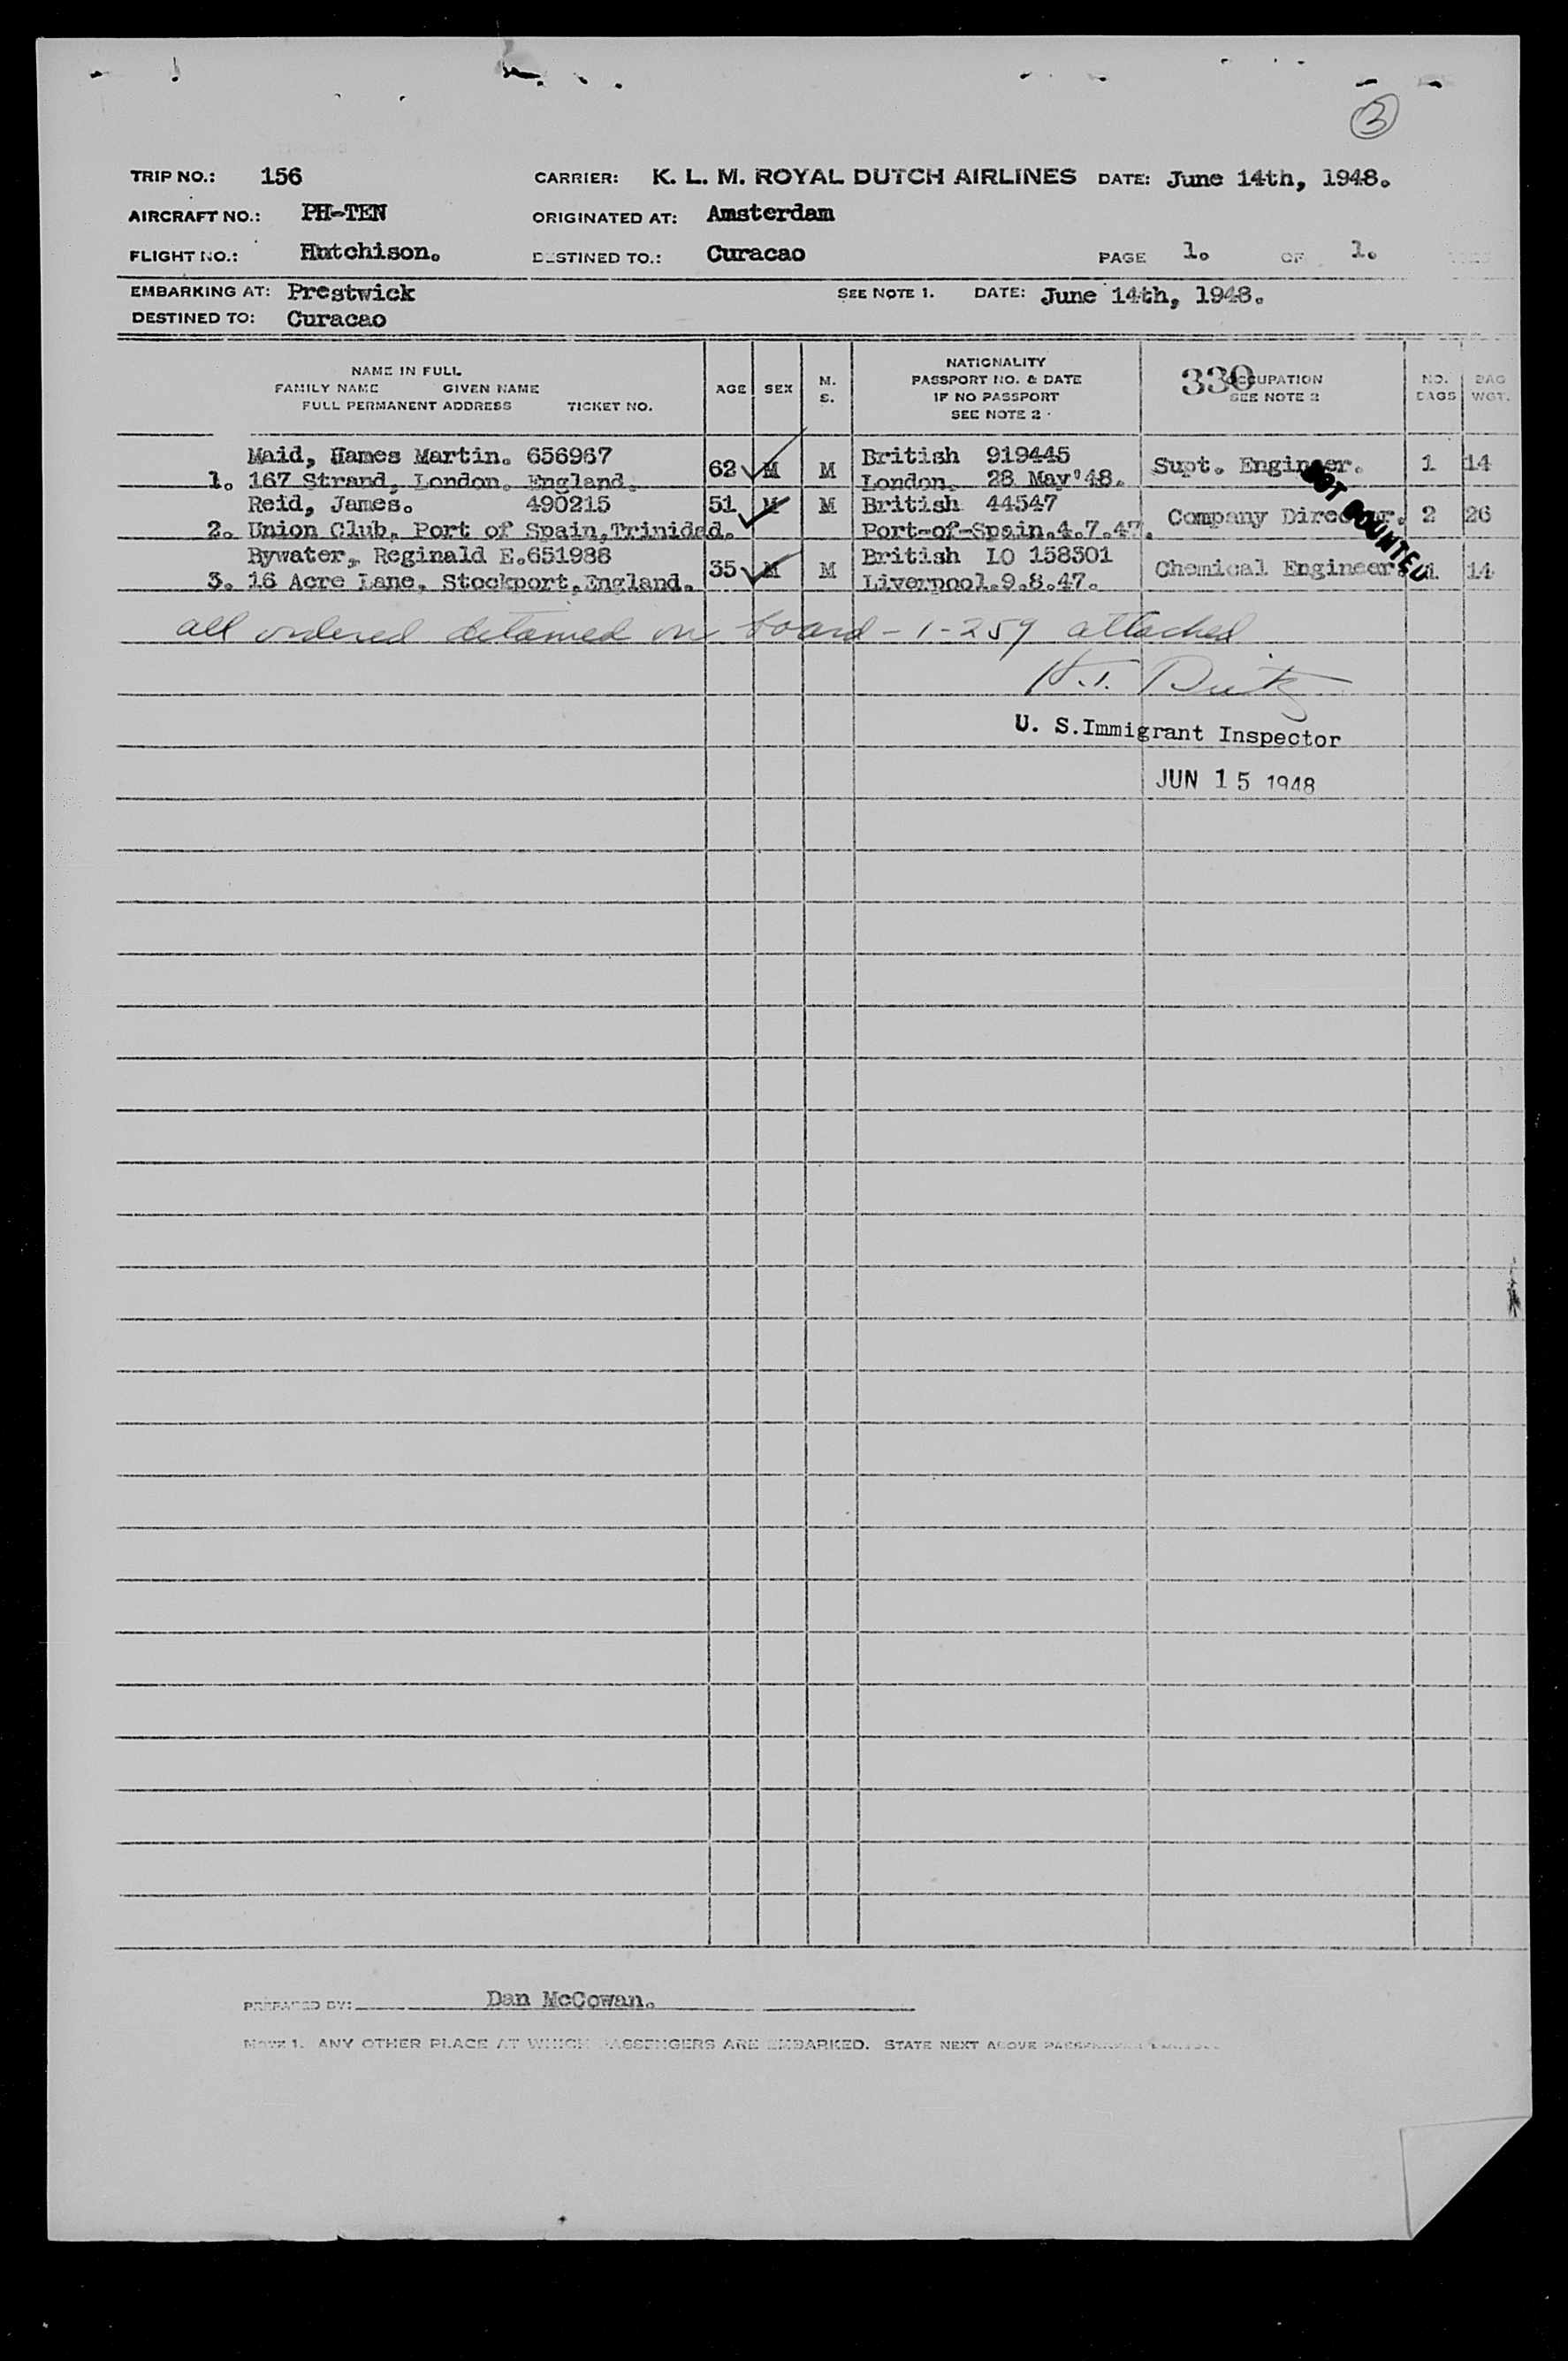 3
TRIP NO.: 156 CARRIER: K. L. M. ROYAL DUTCH AIRLINES DATE: June 14th, 1948.
AIRCRAFT NO.: PH-TEN ORIGINATED AT: Amsterdam
FLIGHT NO.: Hutchison. DESTINED TO.: Curacao PAGE 1. OF 1.
EMBARKING AT: Prestwick SEE NOTE 1. DATE: June 14th, 1948.
DESTINED TO: Curacao
NAME IN FULL
FAMILY NAME GIVEN NAME
FULL PERMANENT ADDRESS TICKET NO.
AGE SEX M. S.
NATIONALITY
PASSPORT NO. & DATE
IF NO PASSPORT
SEE NOTE 2
330
OCCUPATION
SEE NOTE 2
NO. BAGS
BAG WGT.
Maid, Hames Martin. 656967 62 M M British 919445 Supt. Engineer. 1 14
1. 167 Strand, London. England. London. 28 May'48.
Reid, James. 490215 51 M M British 44547 Company Director. 2 26
2. Union Club, Port of Spain,Trinidad. Port-of-Spain.4.7.47.
Bywater, Reginald E.651988 35 M M British LO 158301 Chemical Engineer. 1 14
3. 16 Acre Lane, Stockport,England. Liverpool.9.8.47.
NOT COUNTED
all ordered detained on board - 1-259 attached
H.J.
U. S. Immigrant Inspector
JUN 15 1948
PREPARED BY: Dan McCowan.
NOTE 1. ANY OTHER PLACE AT WHICH PASSENGERS ARE EMBARKED. STATE NEXT ABOVE